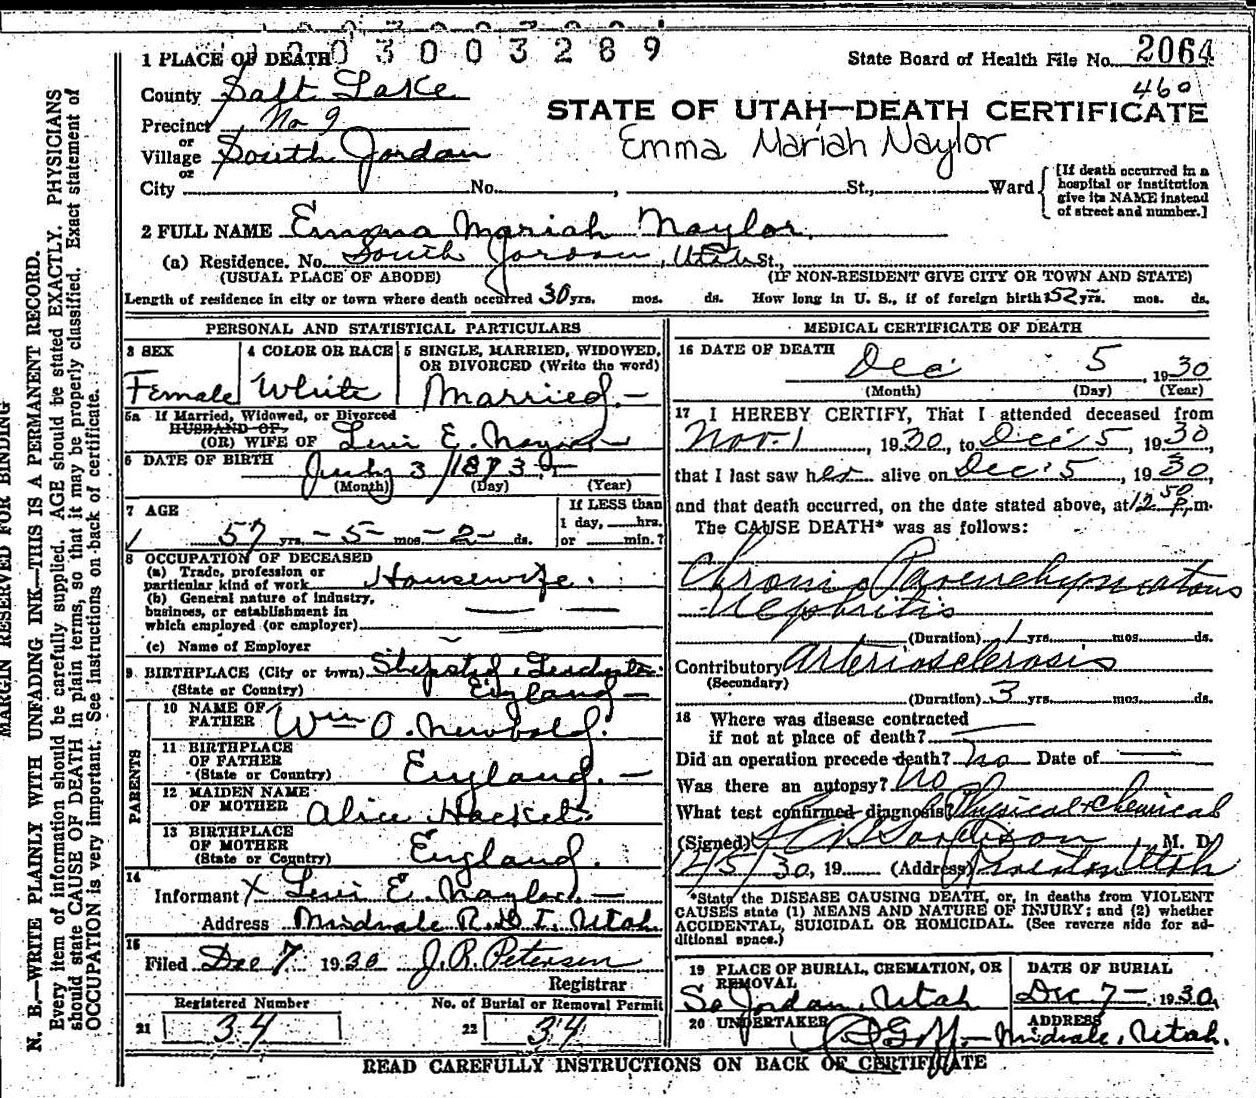 003003289
1 PLACE OF DEATH
State Board of Health File No. 2064
County Salt Lake
460
STATE OF UTAH—DEATH CERTIFICATE
Precinct No 9
or
Emma Mariah Naylor
Village South Jordan
or
City No. , St., Ward
[If death occurred in a hospital or institution give its NAME instead of street and number.]
2 FULL NAME Emma Mariah Naylor.
(a) Residence. No. South Jordan, Utah St.,
(USUAL PLACE OF ABODE) (IF NON-RESIDENT GIVE CITY OR TOWN AND STATE)
Length of residence in city or town where death occurred 30 yrs. mos. ds. How long in U. S., if of foreign birth? 52 yrs. mos. ds.
PERSONAL AND STATISTICAL PARTICULARS
3 SEX
Female
4 COLOR OR RACE
White
5 SINGLE, MARRIED, WIDOWED, OR DIVORCED (Write the word)
Married.—
5a If Married, Widowed, or Divorced
HUSBAND OF
(OR) WIFE OF Levi E. Naylor
6 DATE OF BIRTH July 3 1873
(Month) (Day) (Year)
7 AGE
57 yrs. — 5 — mos. — 2 — ds.
If LESS than
1 day, hrs.
or min.?
8 OCCUPATION OF DECEASED
(a) Trade, profession or
particular kind of work Housewife.
(b) General nature of industry,
business, or establishment in
which employed (or employer)
(c) Name of Employer
9 BIRTHPLACE (City or town)
(State or Country) England —
PARENTS
10 NAME OF
FATHER Wm O. Newbold.
11 BIRTHPLACE
OF FATHER
(State or Country) England. —
12 MAIDEN NAME
OF MOTHER Alice Hackett
13 BIRTHPLACE
OF MOTHER
(State or Country) England.
14
Informant X Levi E. Naylor. —
Address Midvale R.D.1. Utah
15
Filed Dec 7 1930 J. R. Petersen
Registrar
Registered Number
21 34
No. of Burial or Removal Permit
22 34
MEDICAL CERTIFICATE OF DEATH
16 DATE OF DEATH
Dec 5, 1930
(Month) (Day) (Year)
17 I HEREBY CERTIFY, That I attended deceased from
Nov. 1, 1930, to Dec 5, 1930
that I last saw her alive on Dec. 5, 1930,
and that death occurred, on the date stated above, at 12 50 P. m.
The CAUSE DEATH* was as follows:
Chronic Parenchymatous
Nephritis
(Duration) 1 yrs. mos. ds.
Contributory Arteriosclerosis
(Secondary)
(Duration) 3 yrs. mos. ds.
18 Where was disease contracted
if not at place of death?
Did an operation precede death? No Date of
Was there an autopsy? No
What test confirmed diagnosis? Physical & chemical
(Signed) M. D.
12/5/30, 19 (Address) Utah
*State the DISEASE CAUSING DEATH, or, in deaths from VIOLENT
CAUSES state (1) MEANS AND NATURE OF INJURY; and (2) whether
ACCIDENTAL, SUICIDAL OR HOMICIDAL. (See reverse side for ad-
ditional space.)
19 PLACE OF BURIAL, CREMATION, OR
REMOVAL
So Jordan, Utah
DATE OF BURIAL
Dec 7 — 1930
20 UNDERTAKER Goff —
ADDRESS
Midvale, Utah.
READ CAREFULLY INSTRUCTIONS ON BACK OF CERTIFICATE
MARGIN RESERVED FOR BINDING
N. B.—WRITE PLAINLY WITH UNFADING INK—THIS IS A PERMANENT RECORD.
Every item of information should be carefully supplied. AGE should be stated EXACTLY. PHYSICIANS
should state CAUSE OF DEATH in plain terms, so that it may be properly classified. Exact statement of
OCCUPATION is very important. See instructions on back of certificate.